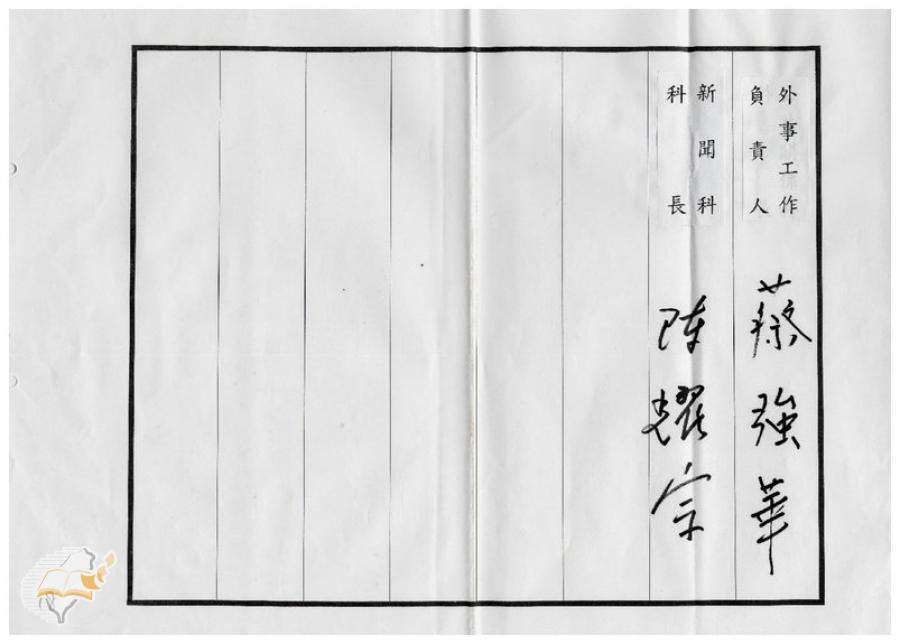 外事工作
負責人
蔡強華
新聞科
科長
陳耀宗